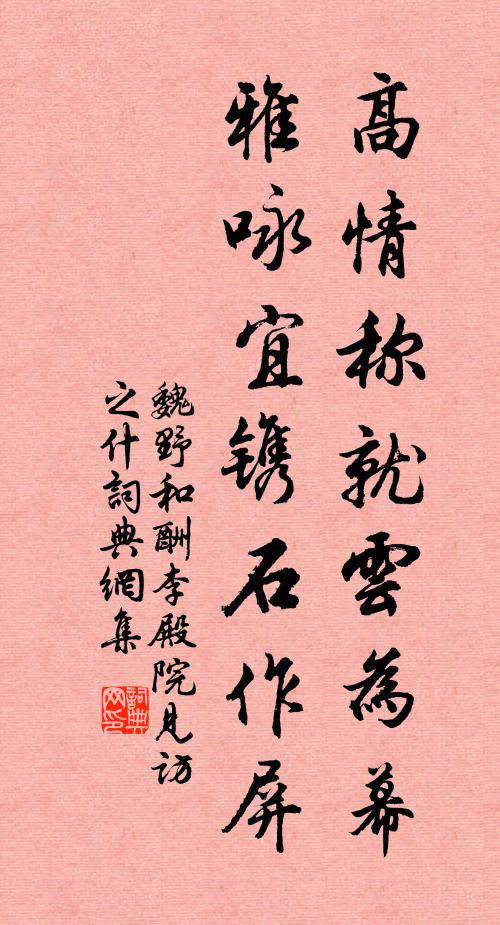 高情称就雲為幕
雅咏宜镌石作屏
魏野和酬李殿院見訪
之什詞典網集
詞典网印